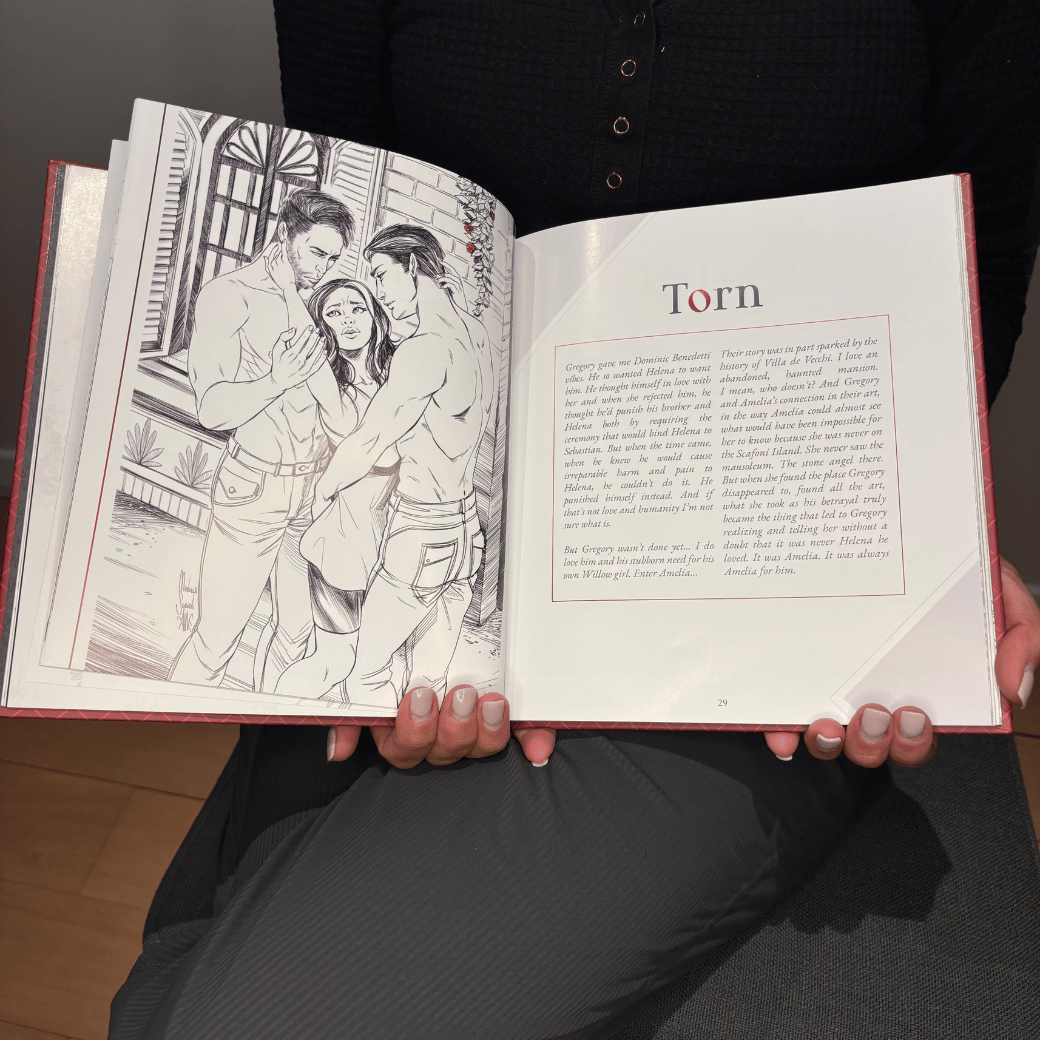 Torn
Gregory gave me Dominic Benedetti
vibes. He so wanted Helena to want
him. He thought himself in love with
her and when she rejected him, he
thought he'd punish his brother and
Helena both by requiring the
ceremony that would bind Helena to
Sebastian. But when the time came,
when he knew he would cause
irreparable harm and pain to
Helena, he couldn't do it. He
punished himself instead. And if
that's not love and humanity I'm not
sure what is.
But Gregory wasn't done yet... I do
love him and his stubborn need for his
own Willow girl. Enter Amelia...
Their story was in part sparked by the
history of Villa de Vecchi. I love an
abandoned, haunted mansion.
I mean, who doesn't? And Gregory
and Amelia's connection in their art,
in the way Amelia could almost see
what would have been impossible for
her to know because she was never on
the Scafoni Island. She never saw the
mausoleum. The stone angel there.
But when she found the place Gregory
disappeared to, found all the art,
what she took as his betrayal truly
became the thing that led to Gregory
realizing and telling her without a
doubt that it was never Helena he
loved. It was Amelia. It was always
Amelia for him.
29